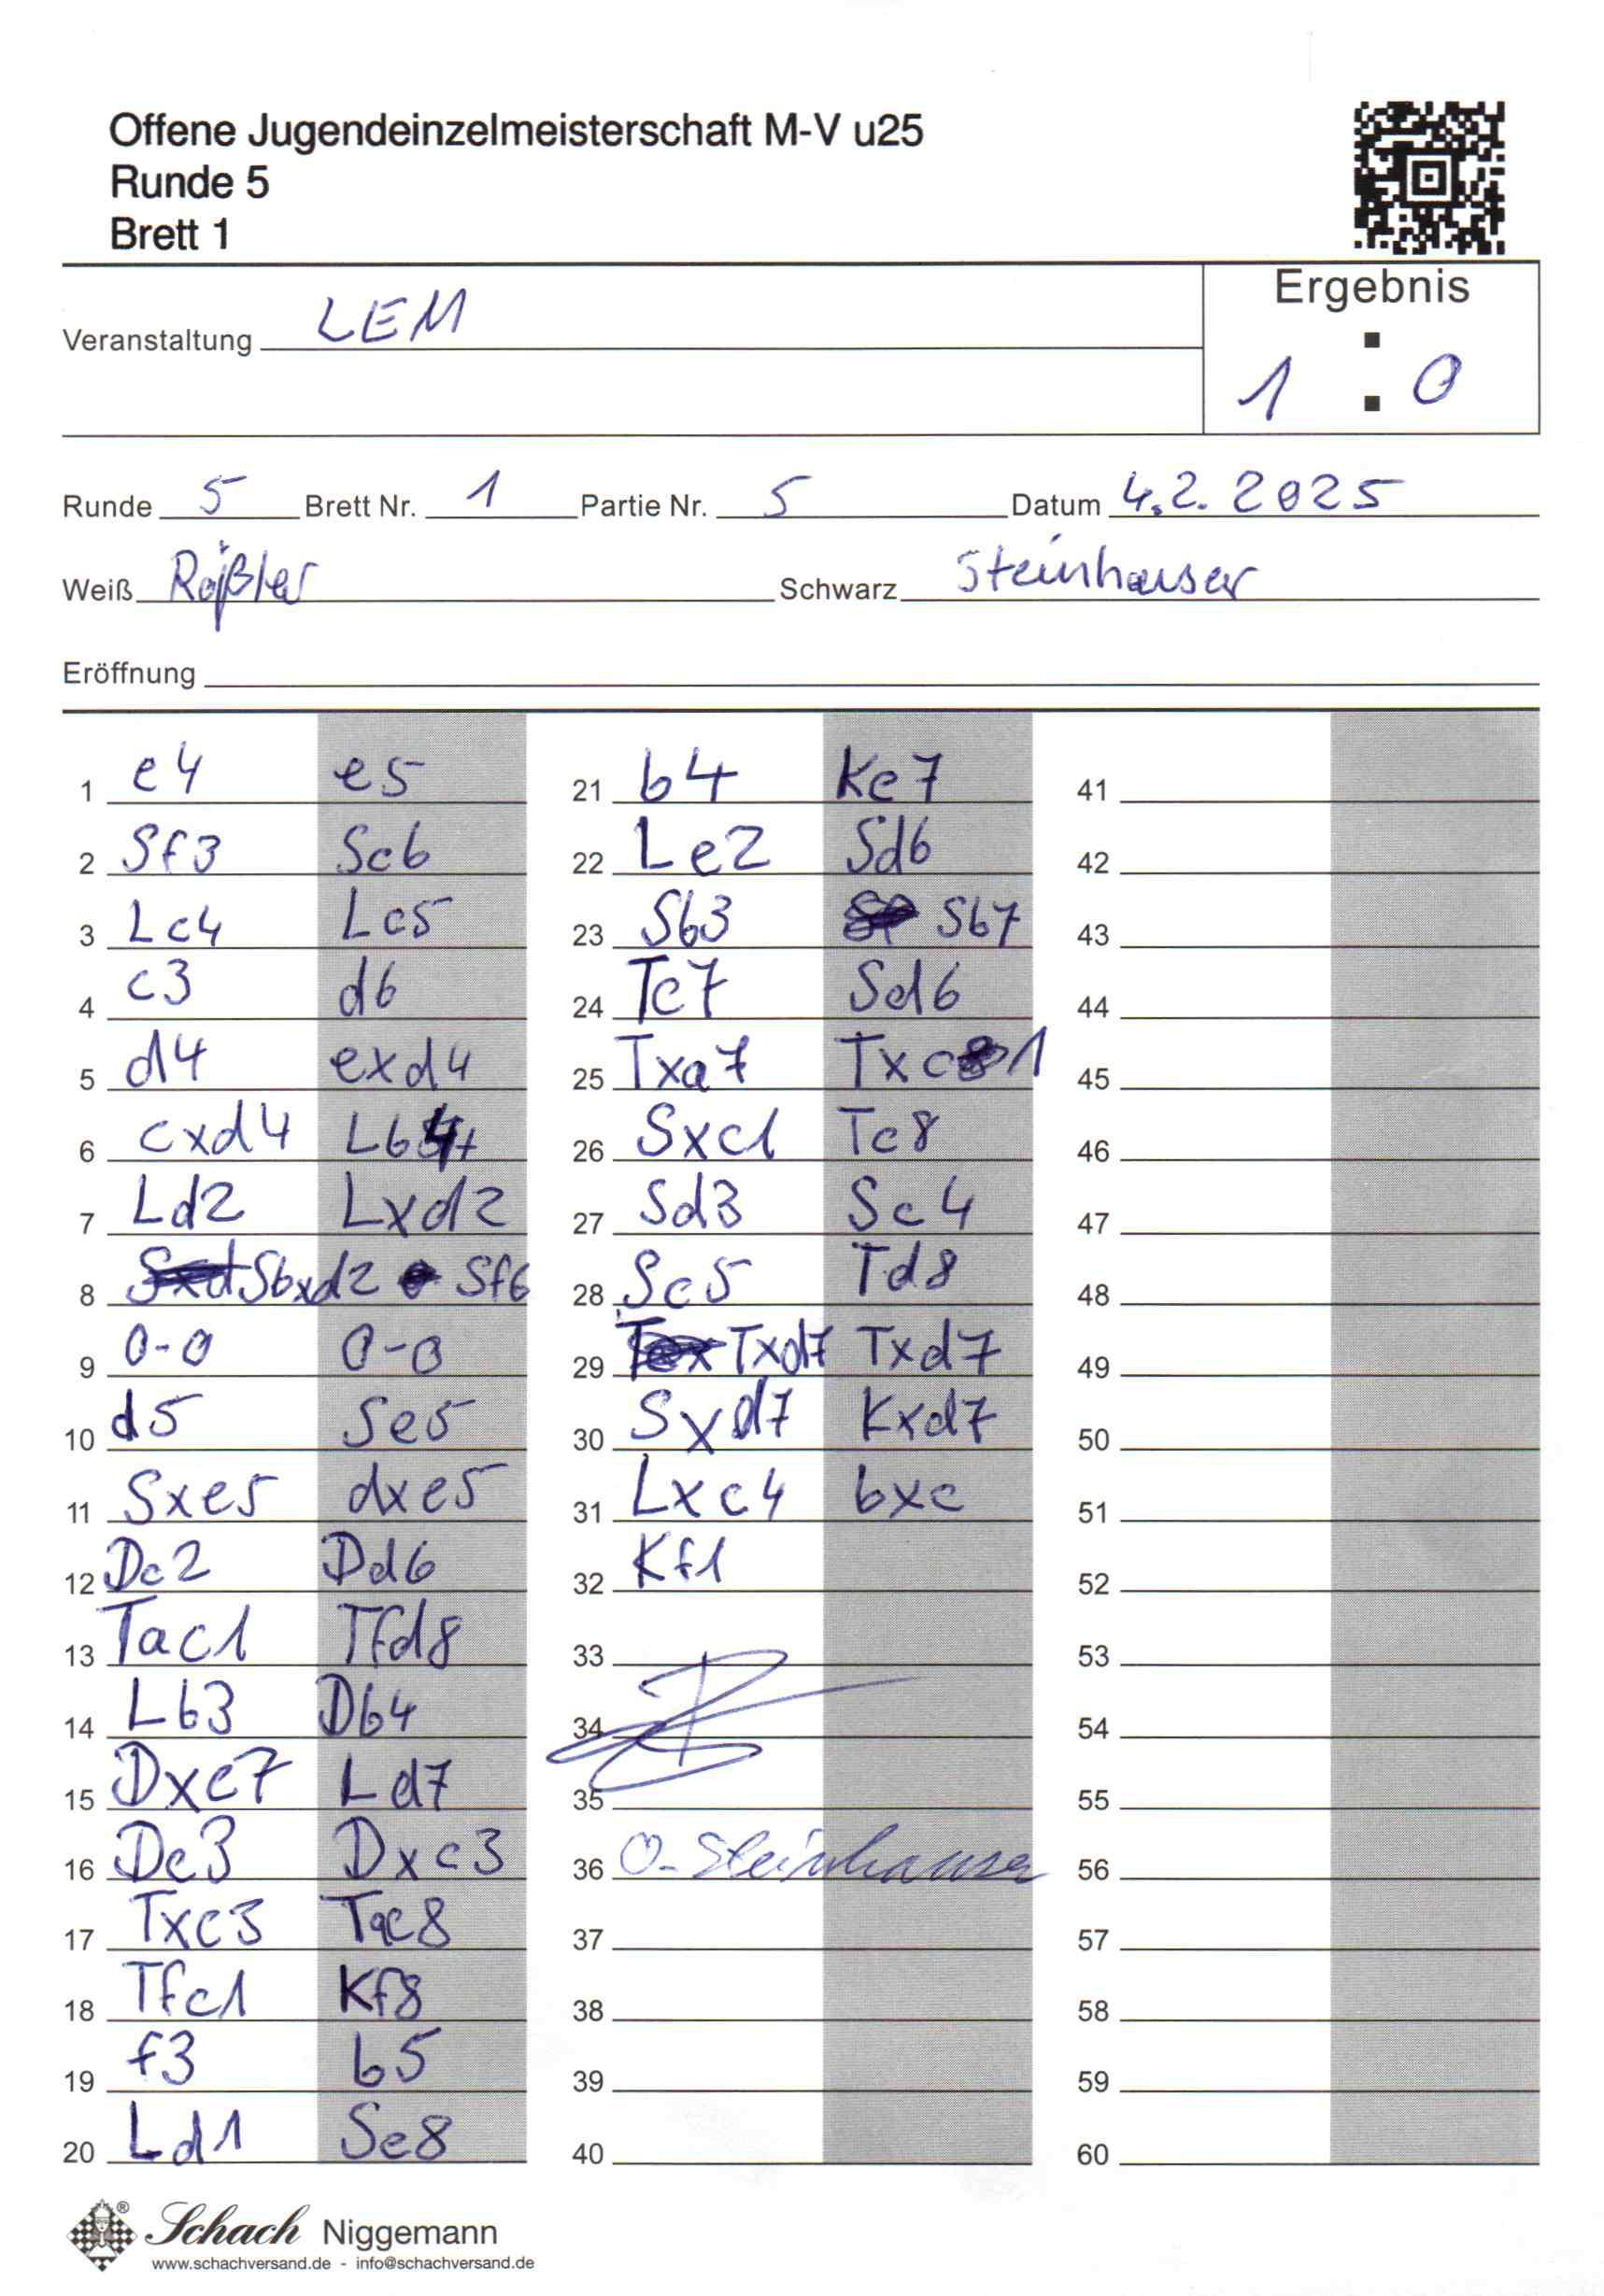 Offene Jugendeinzelmeisterschaft M-V u25
Runde 5
Brett 1
Ergebnis
Veranstaltung LEM
1 : 0
Runde 5 Brett Nr. 1 Partie Nr. 5 Datum 4.2.2025
Weiß Rößler Schwarz Steinhauser
Eröffnung
1 e4 e5
2 Sf3 Sc6
3 Lc4 Lc5
4 c3 d6
5 d4 exd4
6 cxd4 Lb4+
7 Ld2 Lxd2
8 Sbxd2 Sf6
9 0-0 0-0
10 d5 Se5
11 Sxe5 dxe5
12 Dc2 Dd6
13 Tac1 Tfd8
14 Lb3 Db4
15 Dxc7 Ld7
16 Dc3 Dxc3
17 Txc3 Tac8
18 Tfc1 Kf8
19 f3 b5
20 Ld1 Se8
21 b4 Ke7
22 Le2 Sd6
23 Sb3 Sb7
24 Tc7 Sd6
25 Txa7 Txc1
26 Sxc1 Tc8
27 Sd3 Sc4
28 Sc5 Td8
29 Txd7 Txd7
30 Sxd7 Kxd7
31 Lxc4 bxc
32 Kf1
33
34
35
36 O. Steinhauser
37
38
39
40
41
42
43
44
45
46
47
48
49
50
51
52
53
54
55
56
57
58
59
60
Schach Niggemann
www.schachversand.de - info@schachversand.de